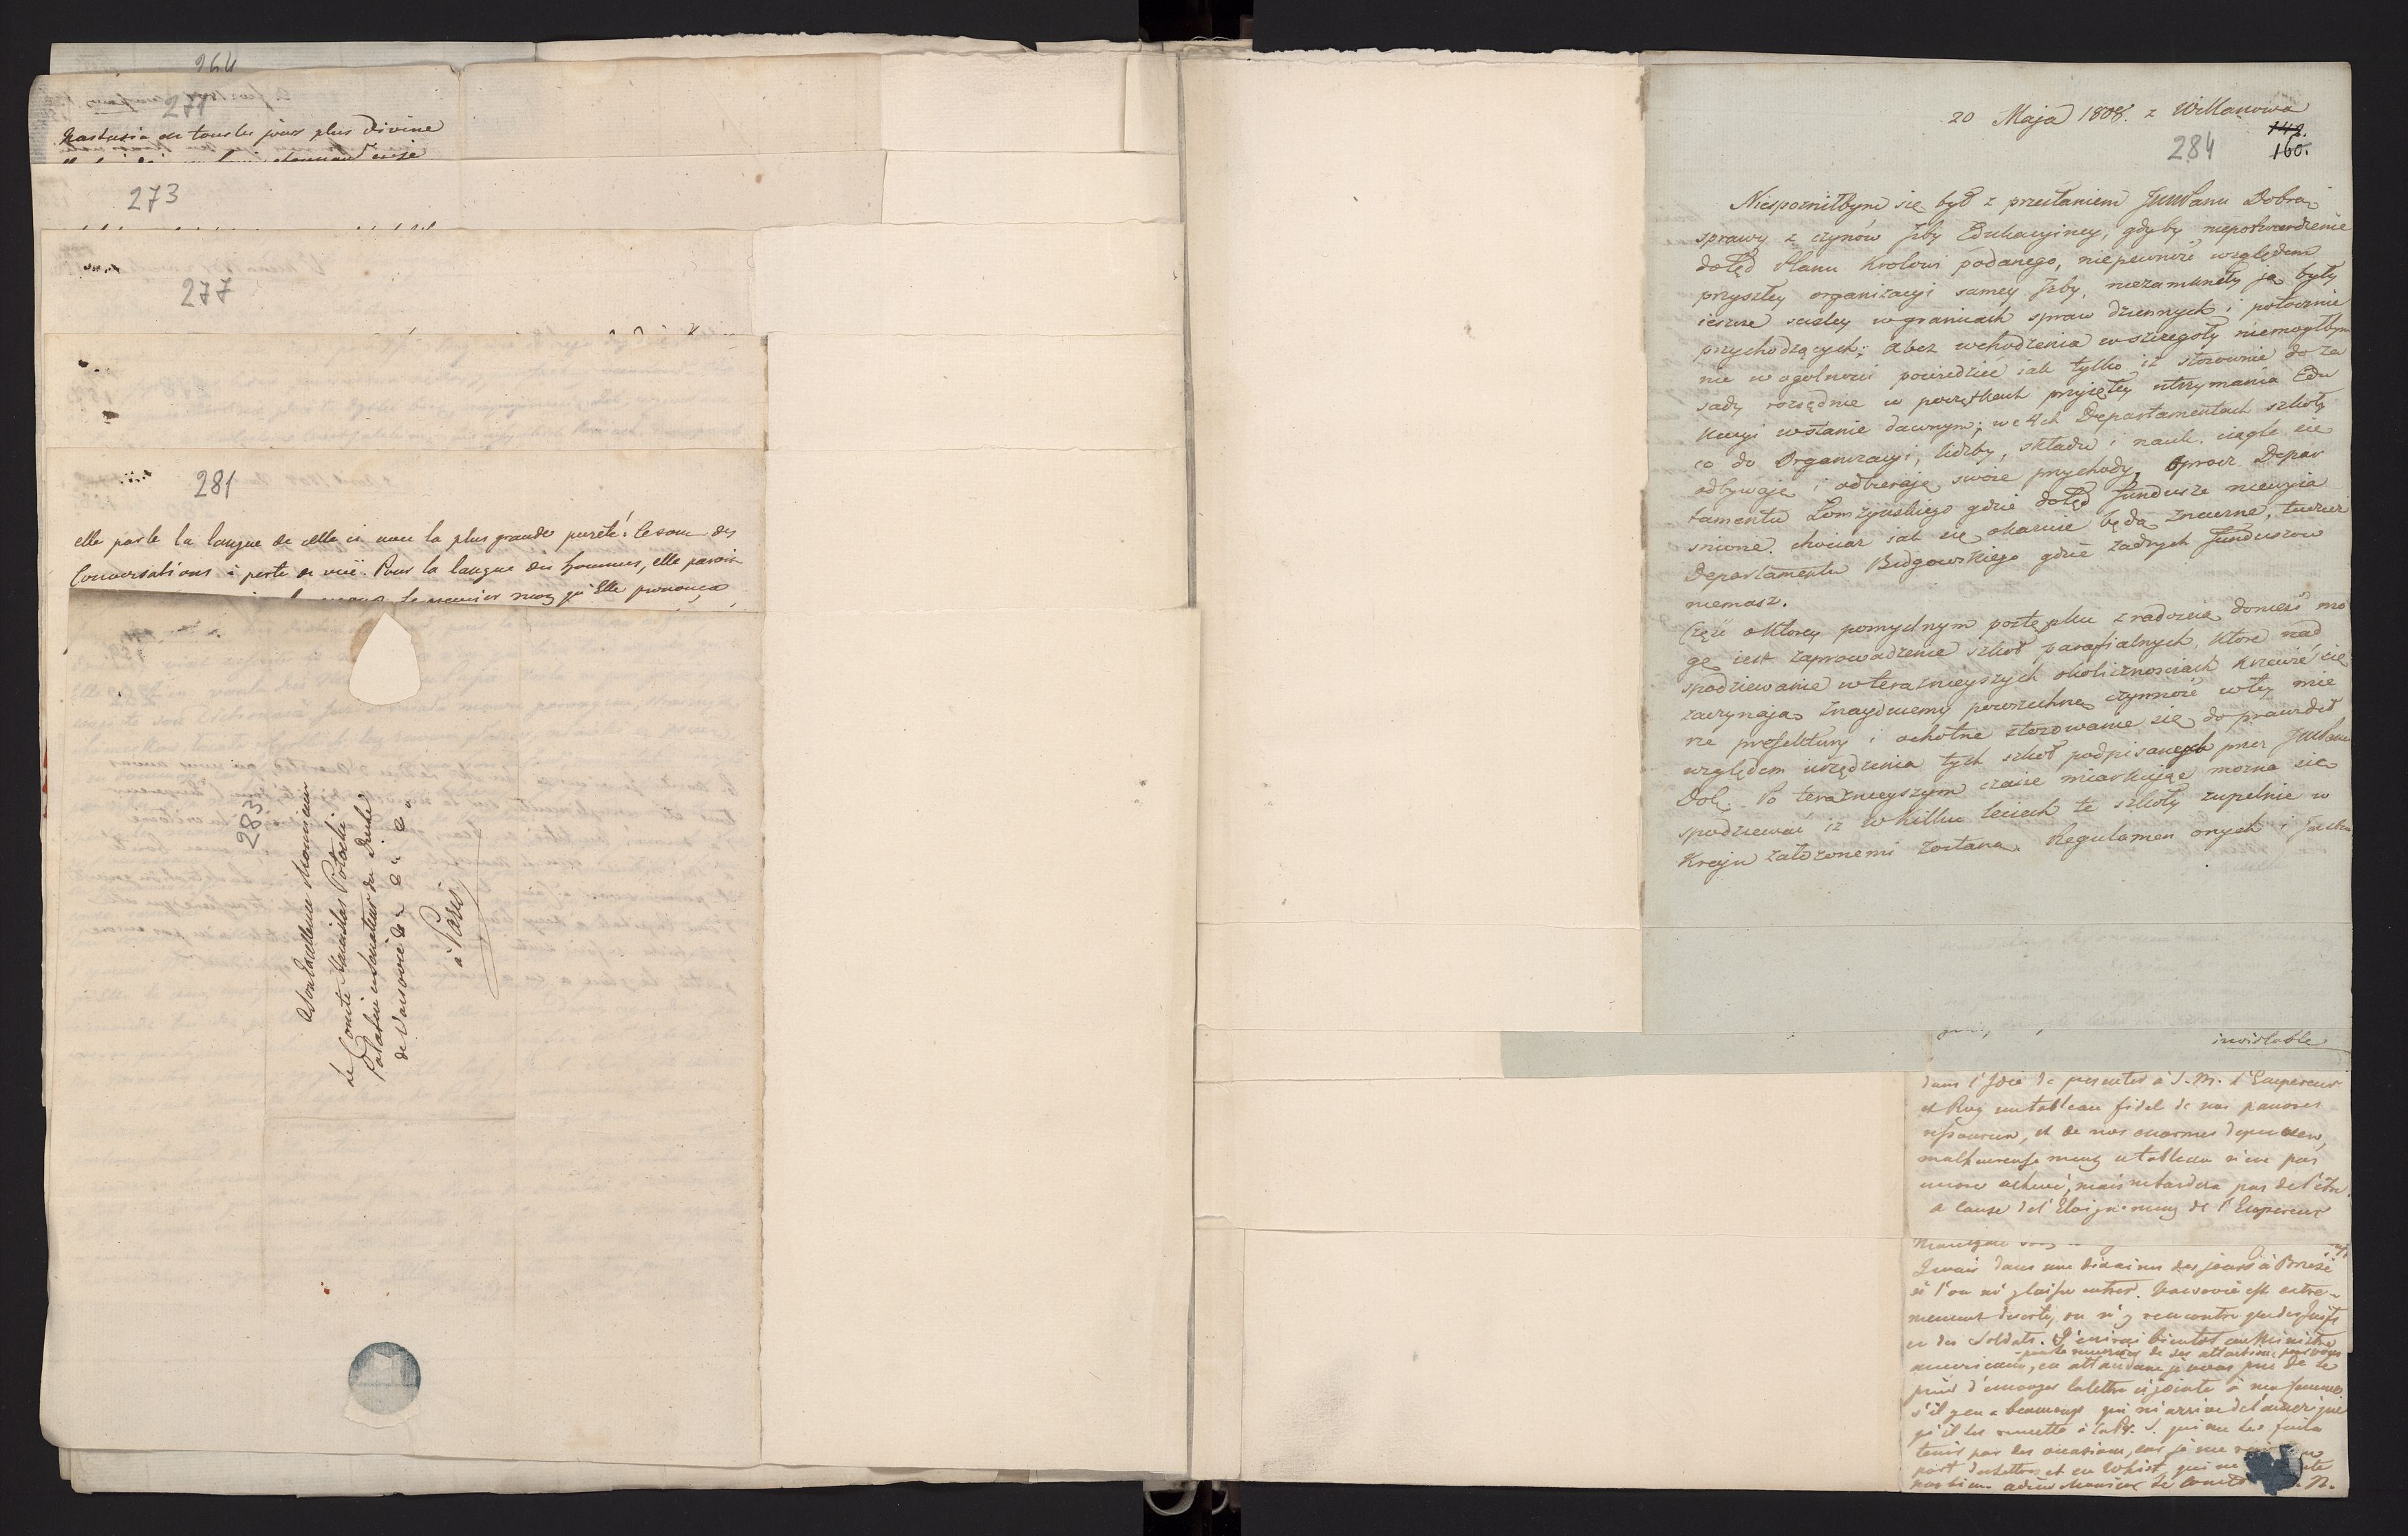 264
271
Nastasia est tous les jours plus divine
273
277
281
elle parle la langue de celle ci avec la plus grande pureté: le sont des
Conversations à perte de vüe. Pour la langue des hommes, elle paroit
le premier mot qu'Elle prononça
283
a Son Excellence Monsieur
Le Comte Stanislas Potocki
Palatin Senateur du Duché
de Varsovie &a &a &a
à Paris
20 Maja 1808. z Willanowa
148.
284 160.
Niespoznilbym się był z przesłaniem JWWPanu Dobro
sprawy z czynów Jzby Edukacyiney, gdyby niepotwierdzenie
dotąd Planu Krolowi podanego, niepewność względem
przyszłey organizacyi samey Jzby, niezamknęły ją były
ieszcze scisley w granicach spraw dziennych i potocznie
przychodzących; a bez wchodzenia w szczegoły niemogłbym
nic w ogolnosci powiedzieć iak tylko iż stosownie do za
sady rozsądnie w początkach przyiętey utrzymania Edu
kacyi w stanie dawnym; we 4ch Departamentach szkoły
co do Organizacyi, liczby, składu i nauk. ciągle się
odbywaią i odbieraią swoie przychody, oprocz Depar
tamentu Łomżyńskiego gdzie dotąd fundusze niewyia
snione. chociaż iak się okazuie będą znaczne, tudzież
Departamentu Bidgowskiego gdzie żadnych Funduszow
niemasz.
Część o ktorey pomyslnym postępku z radością donieść mo
gę iest zaprowadzenie szkoł parafialnych, ktore nad
spodziewanie w teraznieyszych okolicznosciach krzewić się
zaczynaią. Znayduiemy powszechną czynność w tey mie
rze prefektury i ochotne stosowanie się do prawideł
względem urządzenia tych szkoł podpisanych przez JWWPana
Dob. Po teraznieyszym czasie miarkuiąc można się
spodziewać iż w kilku leciech te szkoły zupełnie w
Kraju załozonemi zostaną. Regulamen onych i
inviolable
dans l'idée de presenter à S. M. l'Empereur
et Roy un tableau fidel de nos pauvres
ressources, et de nos enormes depenses,
malheureusement ce tableau n'est pas
encore achevé, mais ne tardera pas de l'être.
a cause de l'Eloignement de l'Empereur
J'irais dans une dixaine des jours à Brzesc
si l'on m'y laisse entrer. Varsovie est extre-
mement desert, on n'y rencontre que des Juifs
et des Soldats. J'ecrirai bientot au Ministre
pour le remercier de ses attentions pour vous
americain, en attendant je vous prie de le
prier d'envoyer la lettre ci jointe à ma femme
s'il y en a beaucoup qui m'arrive de l'amerique
qu'il les remette à la Pr. S. qui me les faira
tenir par des occasions, car je me
port des lettres et en Whist, qui me
pas bien. adieu Monsieur le Comte N.